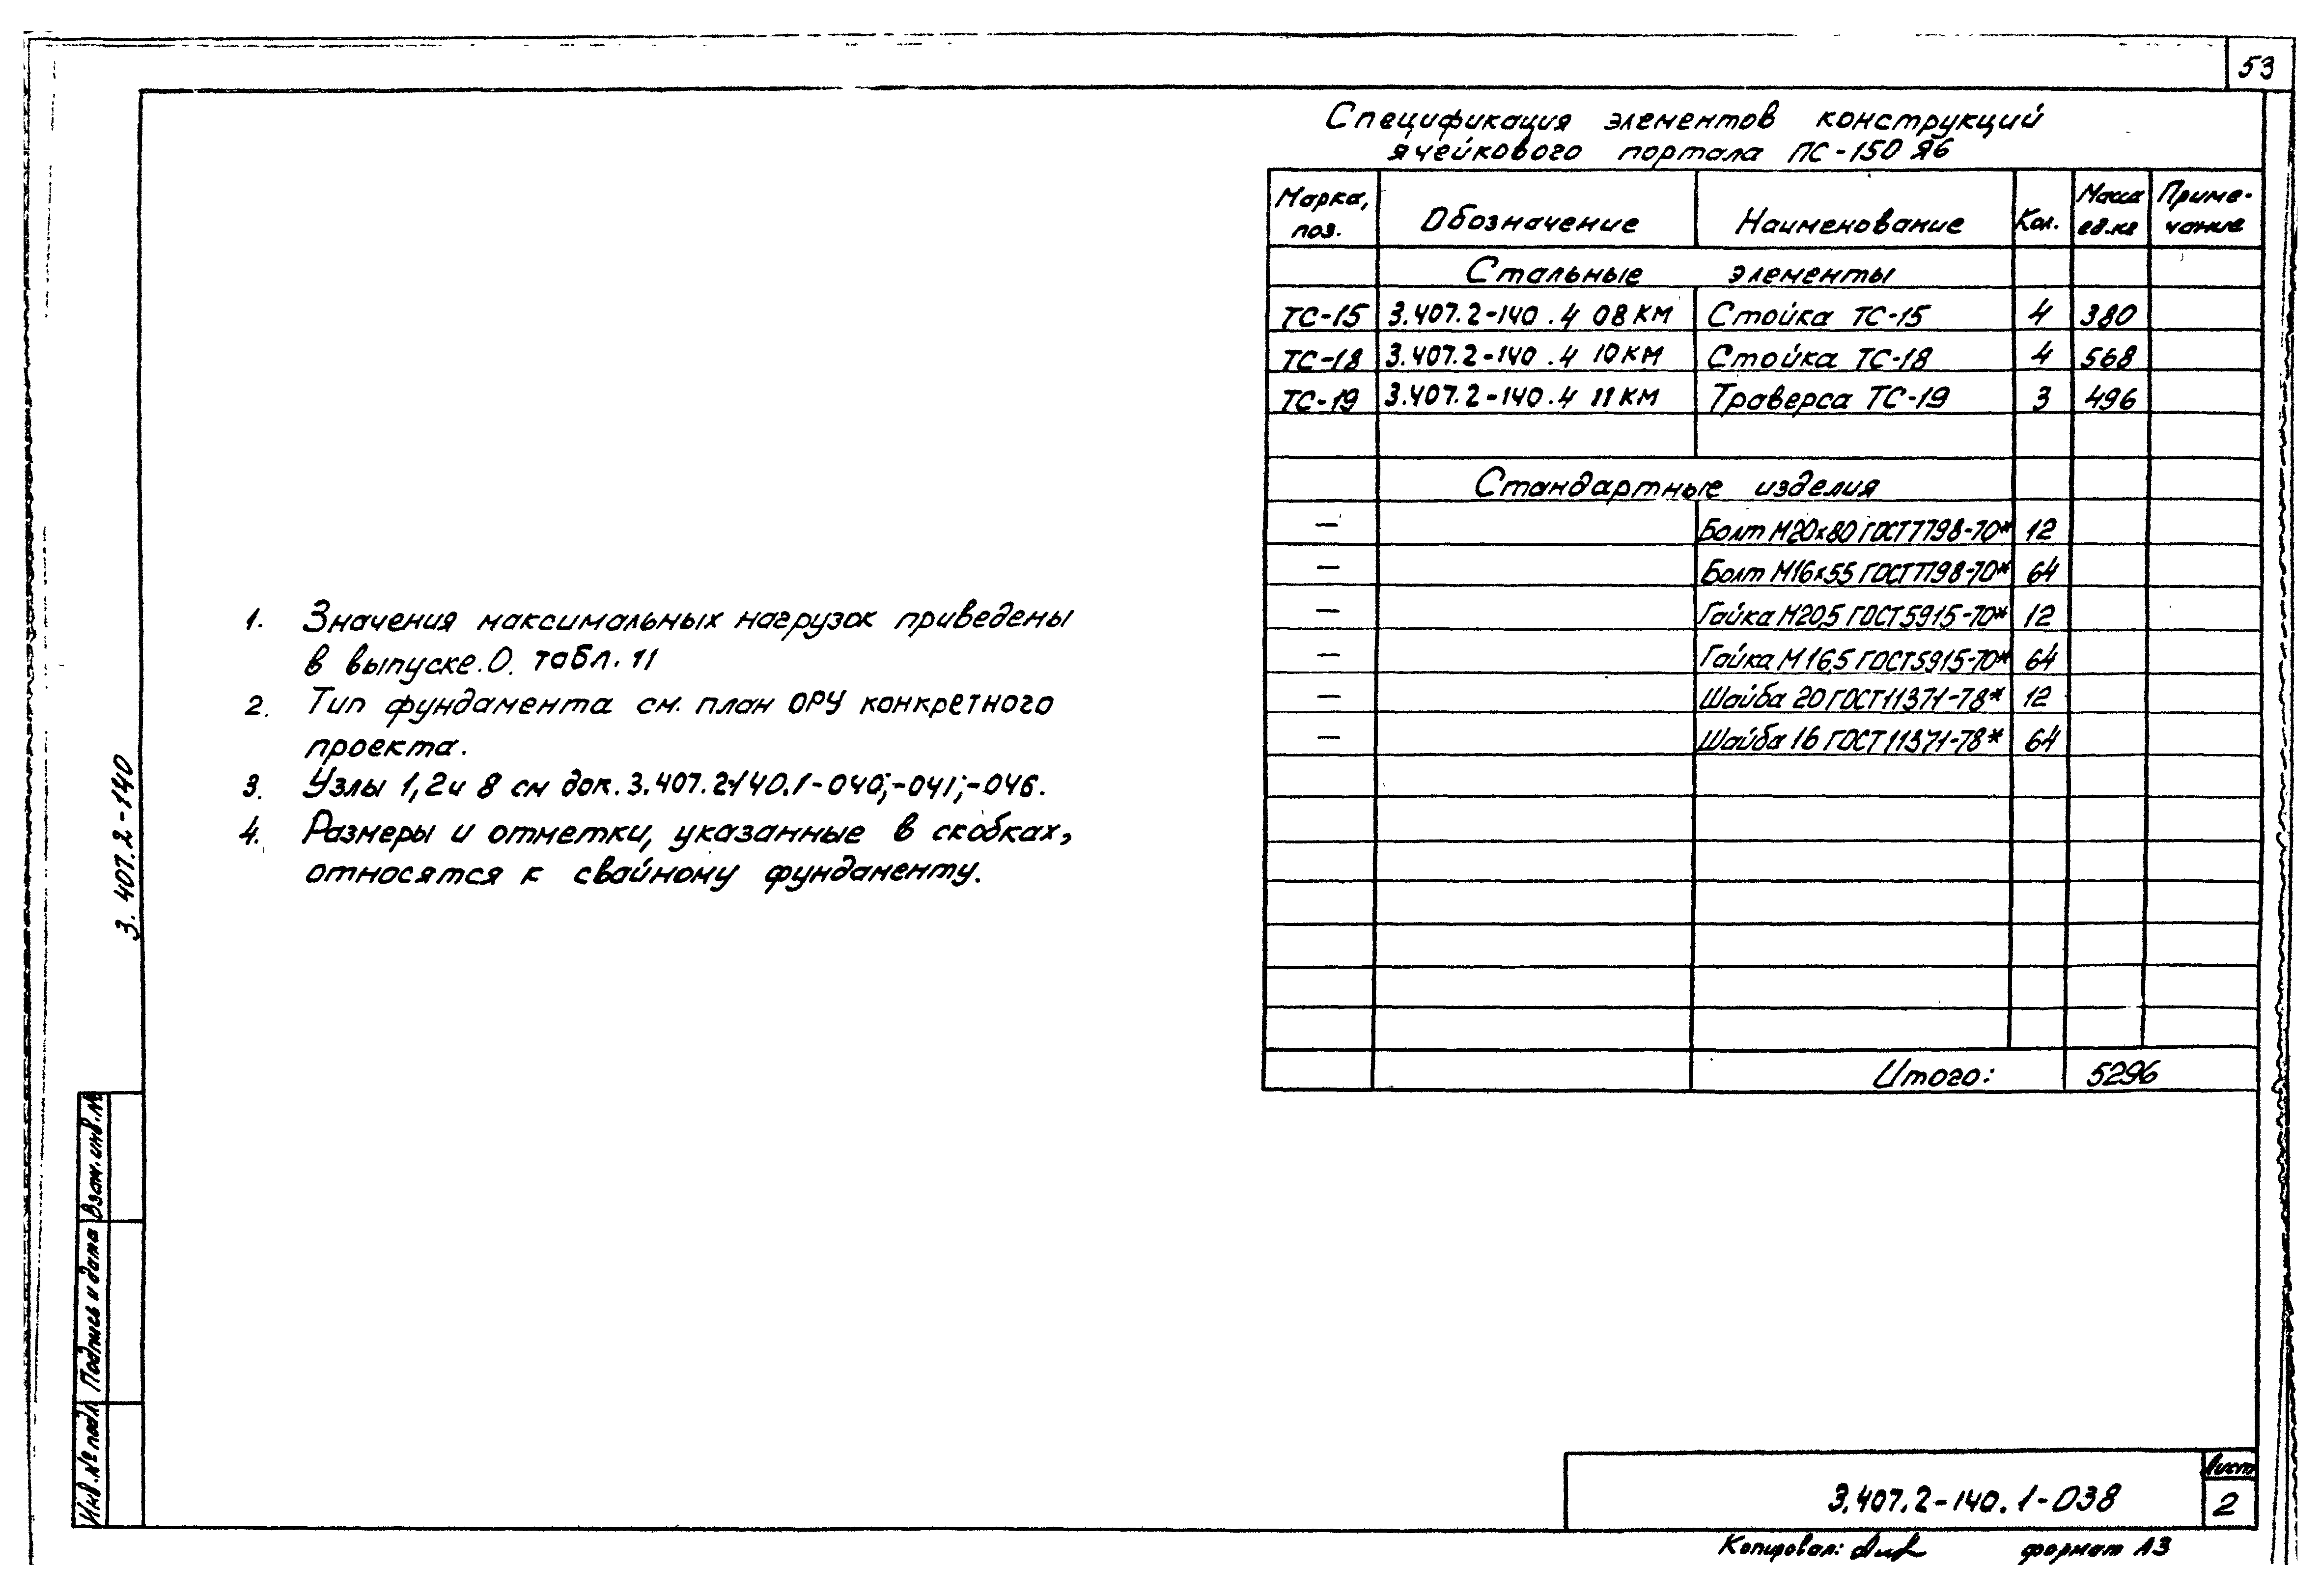 53
Спецификация элементов конструкций
ячейкового портала ПС-150 Я6
Марка, поз. Обозначение Наименование Кол. Масса ед.кг Приме-чание
Стальные элементы
ТС-15 3.407.2-140.4 08КМ Стойка ТС-15 4 380
ТС-18 3.407.2-140.4 10КМ Стойка ТС-18 4 568
ТС-19 3.407.2-140.4 11КМ Траверса ТС-19 3 496
Стандартные изделия
— Болт М20х80 ГОСТ7798-70* 12
— Болт М16х55 ГОСТ7798-70* 64
— Гайка М20,5 ГОСТ5915-70* 12
— Гайка М16,5 ГОСТ5915-70* 64
— Шайба 20 ГОСТ11371-78* 12
— Шайба 16 ГОСТ11371-78* 64
Итого: 5296
1. Значения максимальных нагрузок приведены
в выпуске.0. табл. 11
2. Тип фундамента см. план ОРУ конкретного
проекта.
3. Узлы 1,2 и 8 см док. 3.407.2-140.1-040;-041;-046.
4. Размеры и отметки, указанные в скобках,
относятся к свайному фундаменту.
3.407.2-140
Взам.инв.№
Подпись и дата
Инв.№ подл
3.407.2-140.1-038
Лист
2
Копировал:
формат А3